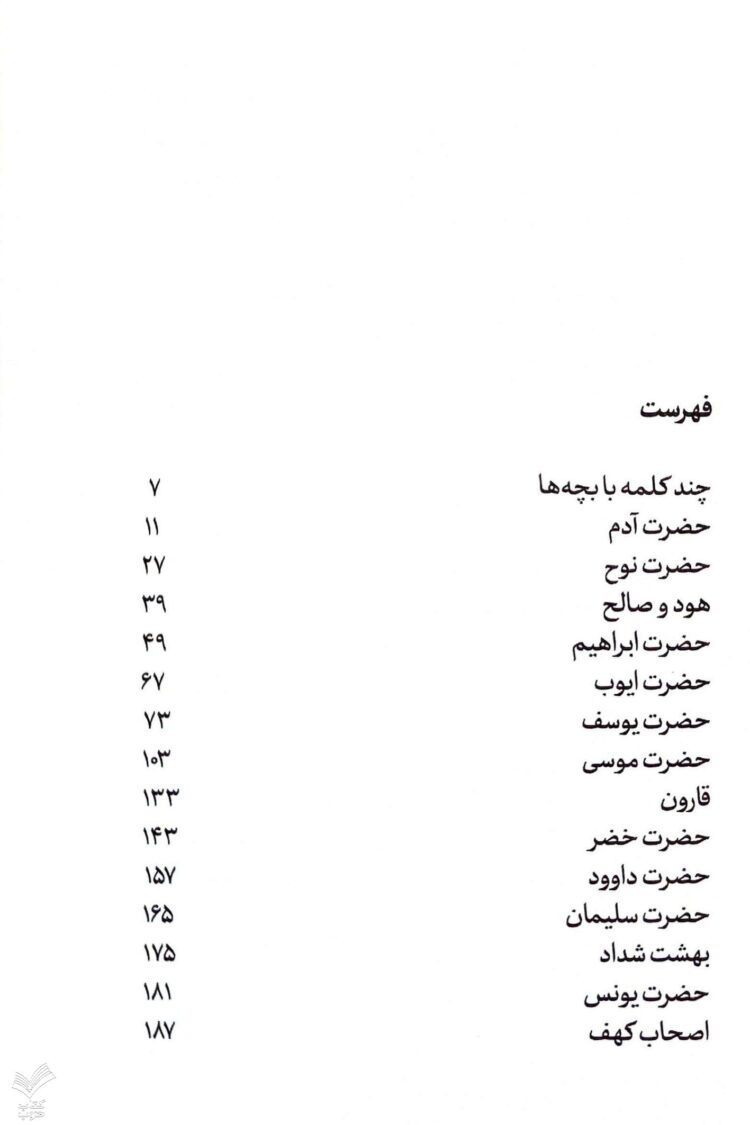 فهرست
چند کلمه با بچه‌ها ۷
حضرت آدم ۱۱
حضرت نوح ۲۷
هود و صالح ۳۹
حضرت ابراهیم ۴۹
حضرت ایوب ۶۷
حضرت یوسف ۷۳
حضرت موسی ۱۰۳
قارون ۱۳۳
حضرت خضر ۱۴۳
حضرت داوود ۱۵۷
حضرت سلیمان ۱۶۵
بهشت شداد ۱۷۵
حضرت یونس ۱۸۱
اصحاب کهف ۱۸۷